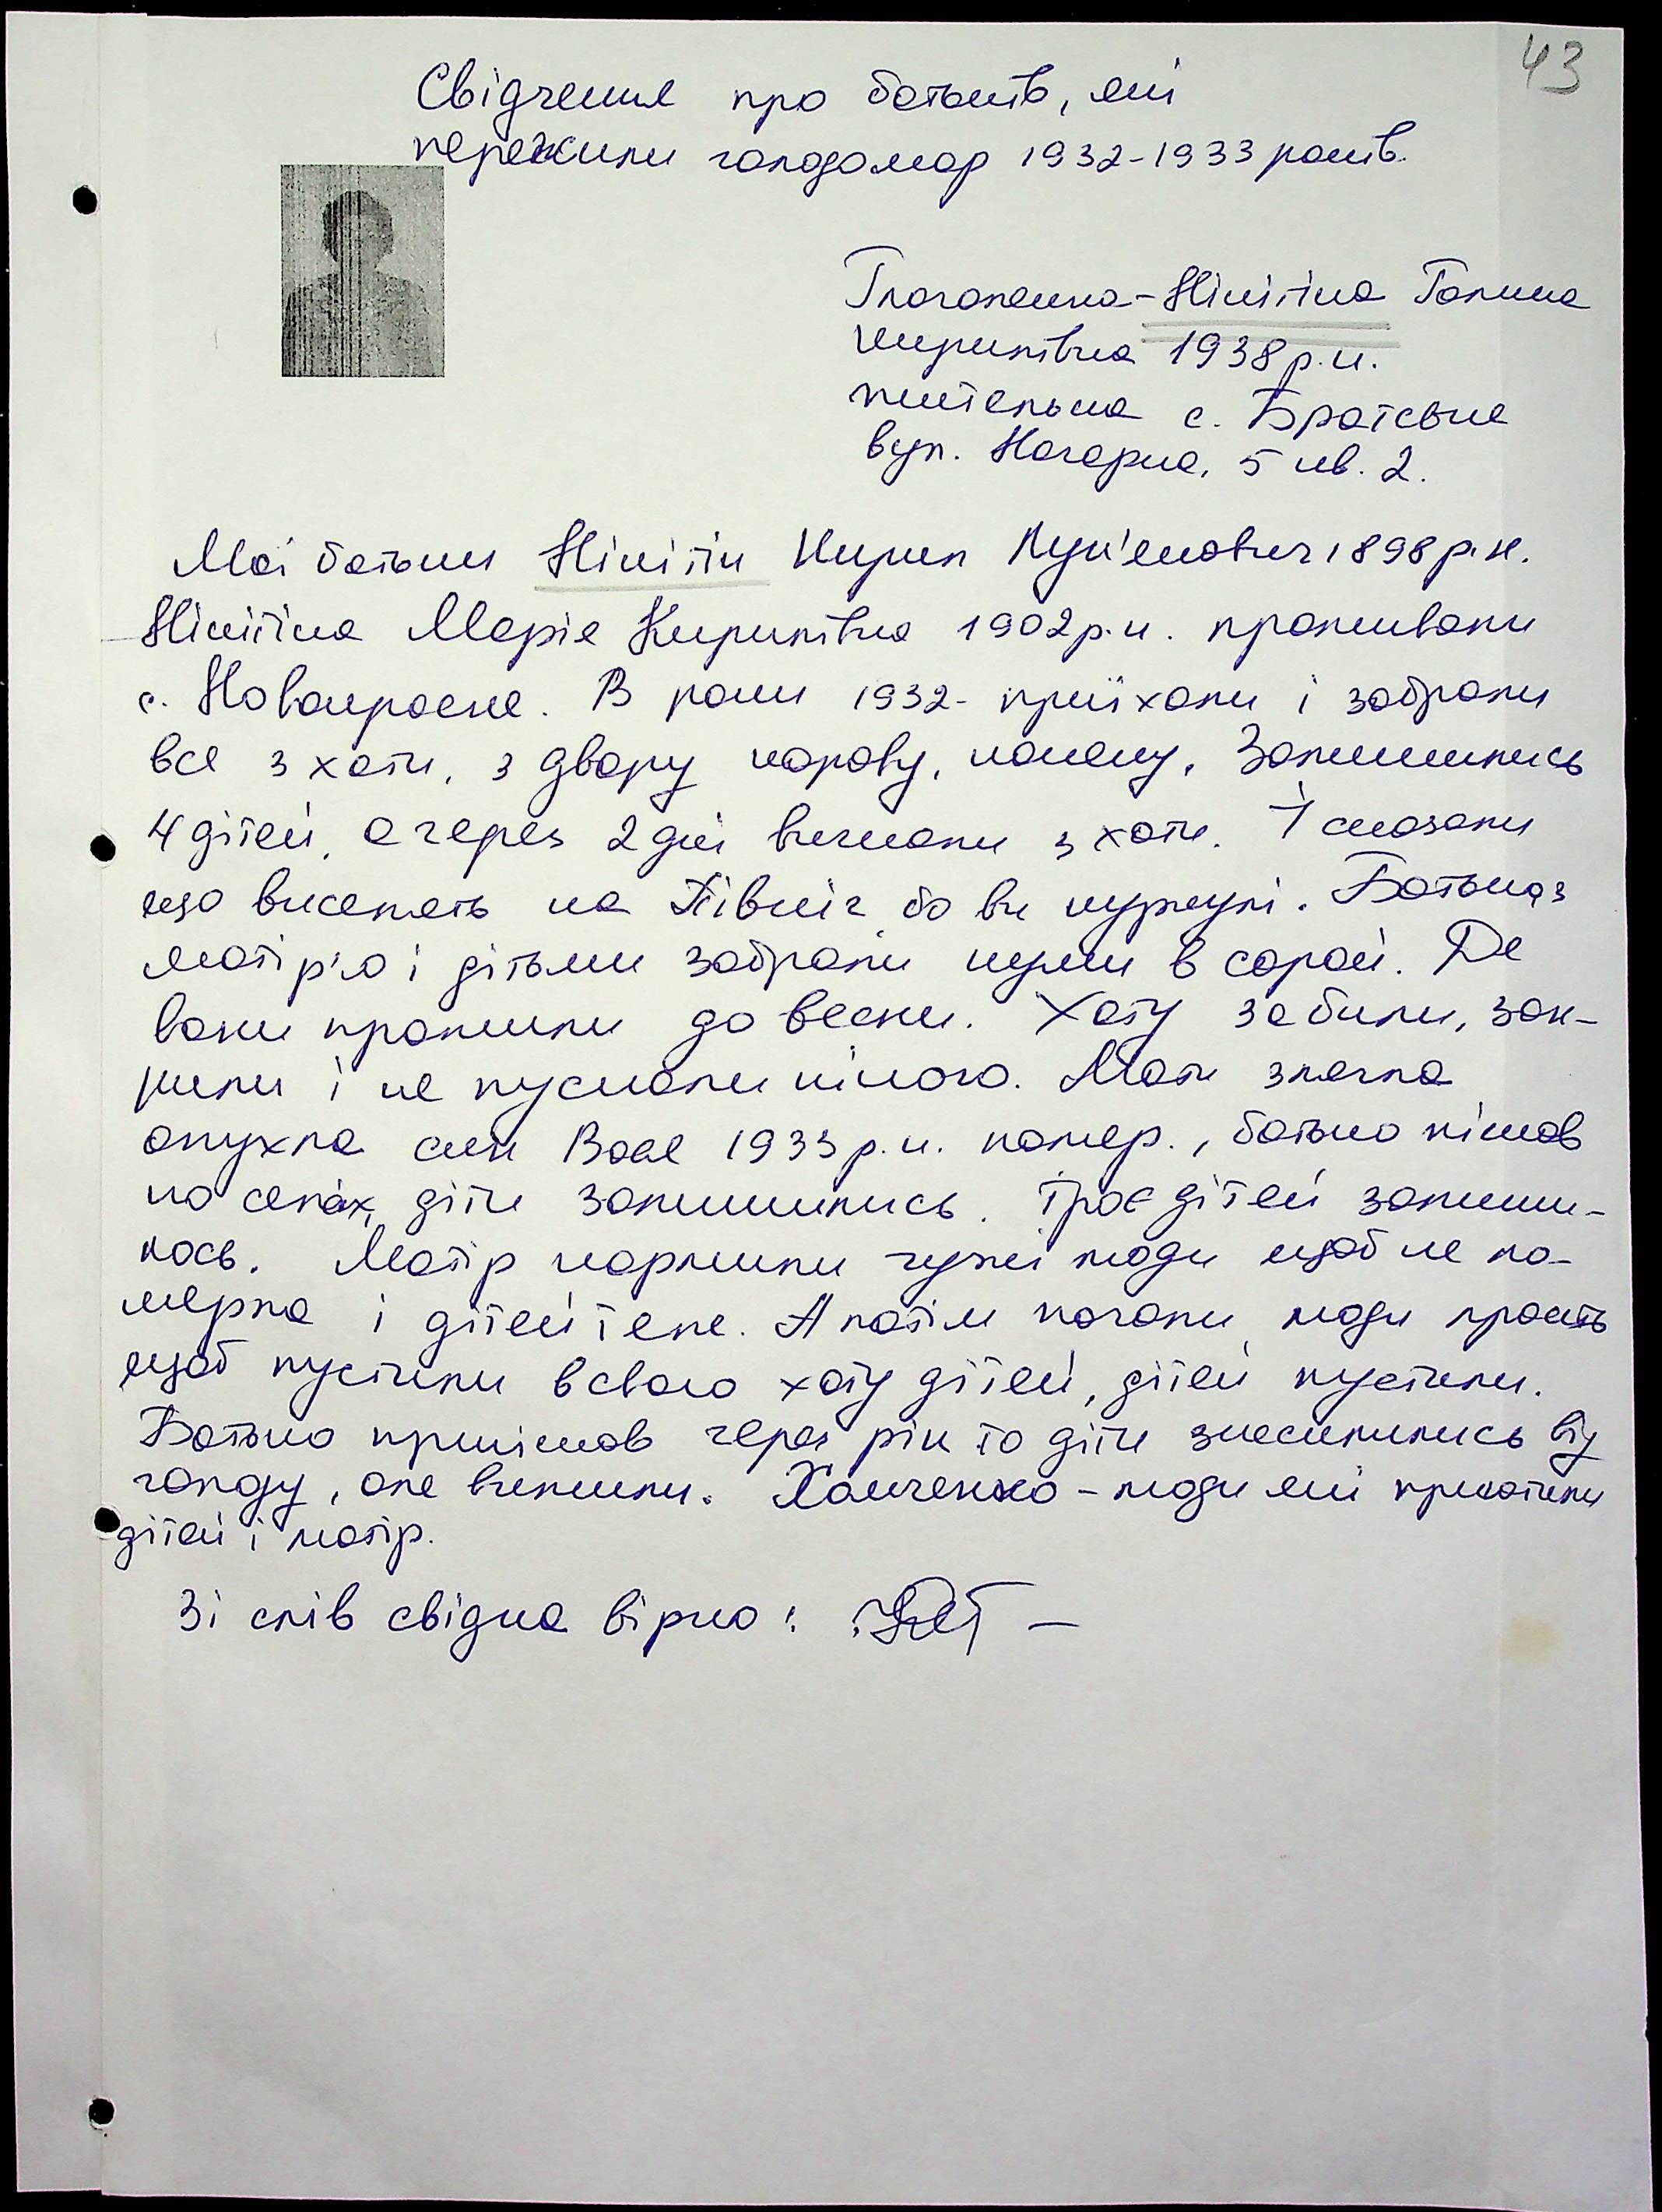 43
Свідчення про батьків, які
пережили голодомор 1932-1933 років.
Глоголенко-Нікітіна Галина
Кирилівна 1938 р.н.
жителька с. Братське
вул. Нагорна, 5 кв. 2.
Мої батьки Нікітін Кирил Лук'янович 1898 р.н.
Нікітіна Марія Кирилівна 1902 р.н. проживали
с. Новокраснe. В роки 1932- приїхали і забрали
все з хати, з двору корову, коняку. Залишились
4 дітей, а через 2 дні вигнали з хати. І сказали
що висилять на Північ бо ви куркулі. Батька з
матір'ю і дітьми забрали куми в сарай. Де
вони прожили до весни. Хату забили, зак-
рили і не пускали нікого. Мати злягла
опухла син Вася 1933 р.н. помер., батько пішов
по селах, діти залишились. Троє дітей залиши-
лось. Матір кормили чужі люди щоб не по-
мерла і дітей теж. А потім почали люди просить
щоб пустили в свою хату дітей, дітей пустили.
Батько прийшов через рік то діти знесилились від
голоду, але вижили. Харченко - люди які прихотили
дітей і матір.
Зі слів свідка вірно: